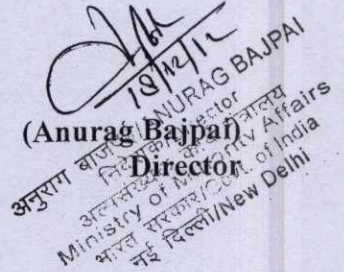 18/12/12
(Anurag Bajpai)
Director
अनुराग बाजपेई / ANURAG BAJPAI
निदेशक / Director
अल्पसंख्यक कार्य मंत्रालय
Ministry of Minority Affairs
भारत सरकार/Govt. of India
नई दिल्ली/New Delhi